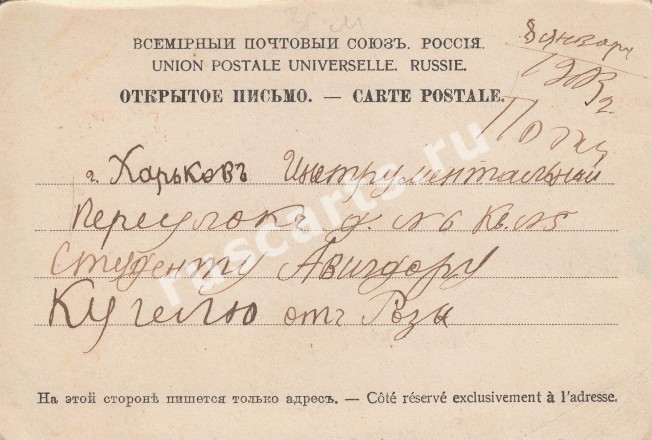 ВСЕМІРНЫЙ ПОЧТОВЫЙ СОЮЗЪ. РОССІЯ.
UNION POSTALE UNIVERSELLE. RUSSIE.
ОТКРЫТОЕ ПИСЬМО. — CARTE POSTALE.
8 января
1903 г.
г. Харьковъ Инструментальный
переулокъ д. №6 Кв. №5
Студенту Авигдору
Кугелю отъ Розы
На этой сторонѣ пишется только адресъ. — Côté réservé exclusivement à l'adresse.
rascarts.ru